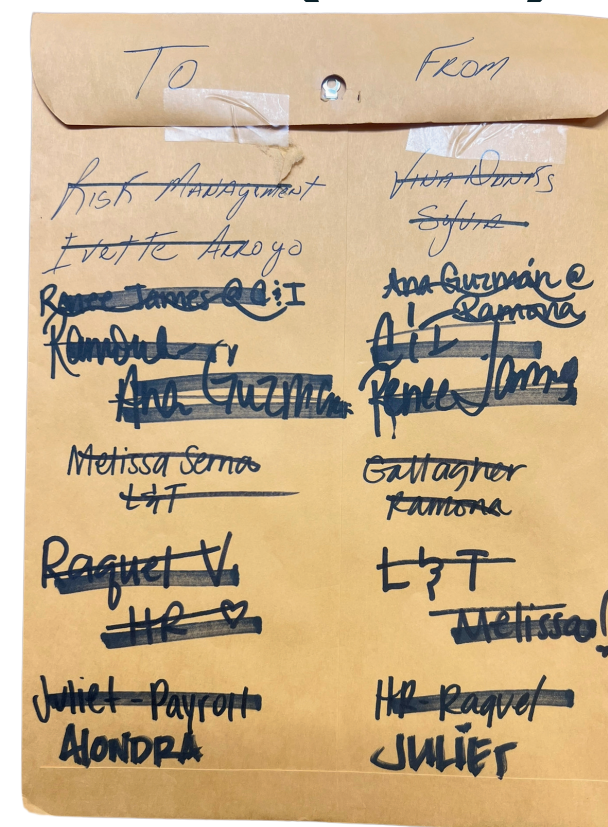 TO FROM
Risk Management
Ivette Arroyo
Renee James @ C&I
Ramona
Ana Guzman
Melissa Serna
L&T
Raquel V.
HR ♡
Juliet - Payroll
AlONDRA
Sylvia
Ana Guzmán @
Ramona
Renee James
Gallagher
Ramona
L & T
Melissa!
HR-Raquel
JULIET